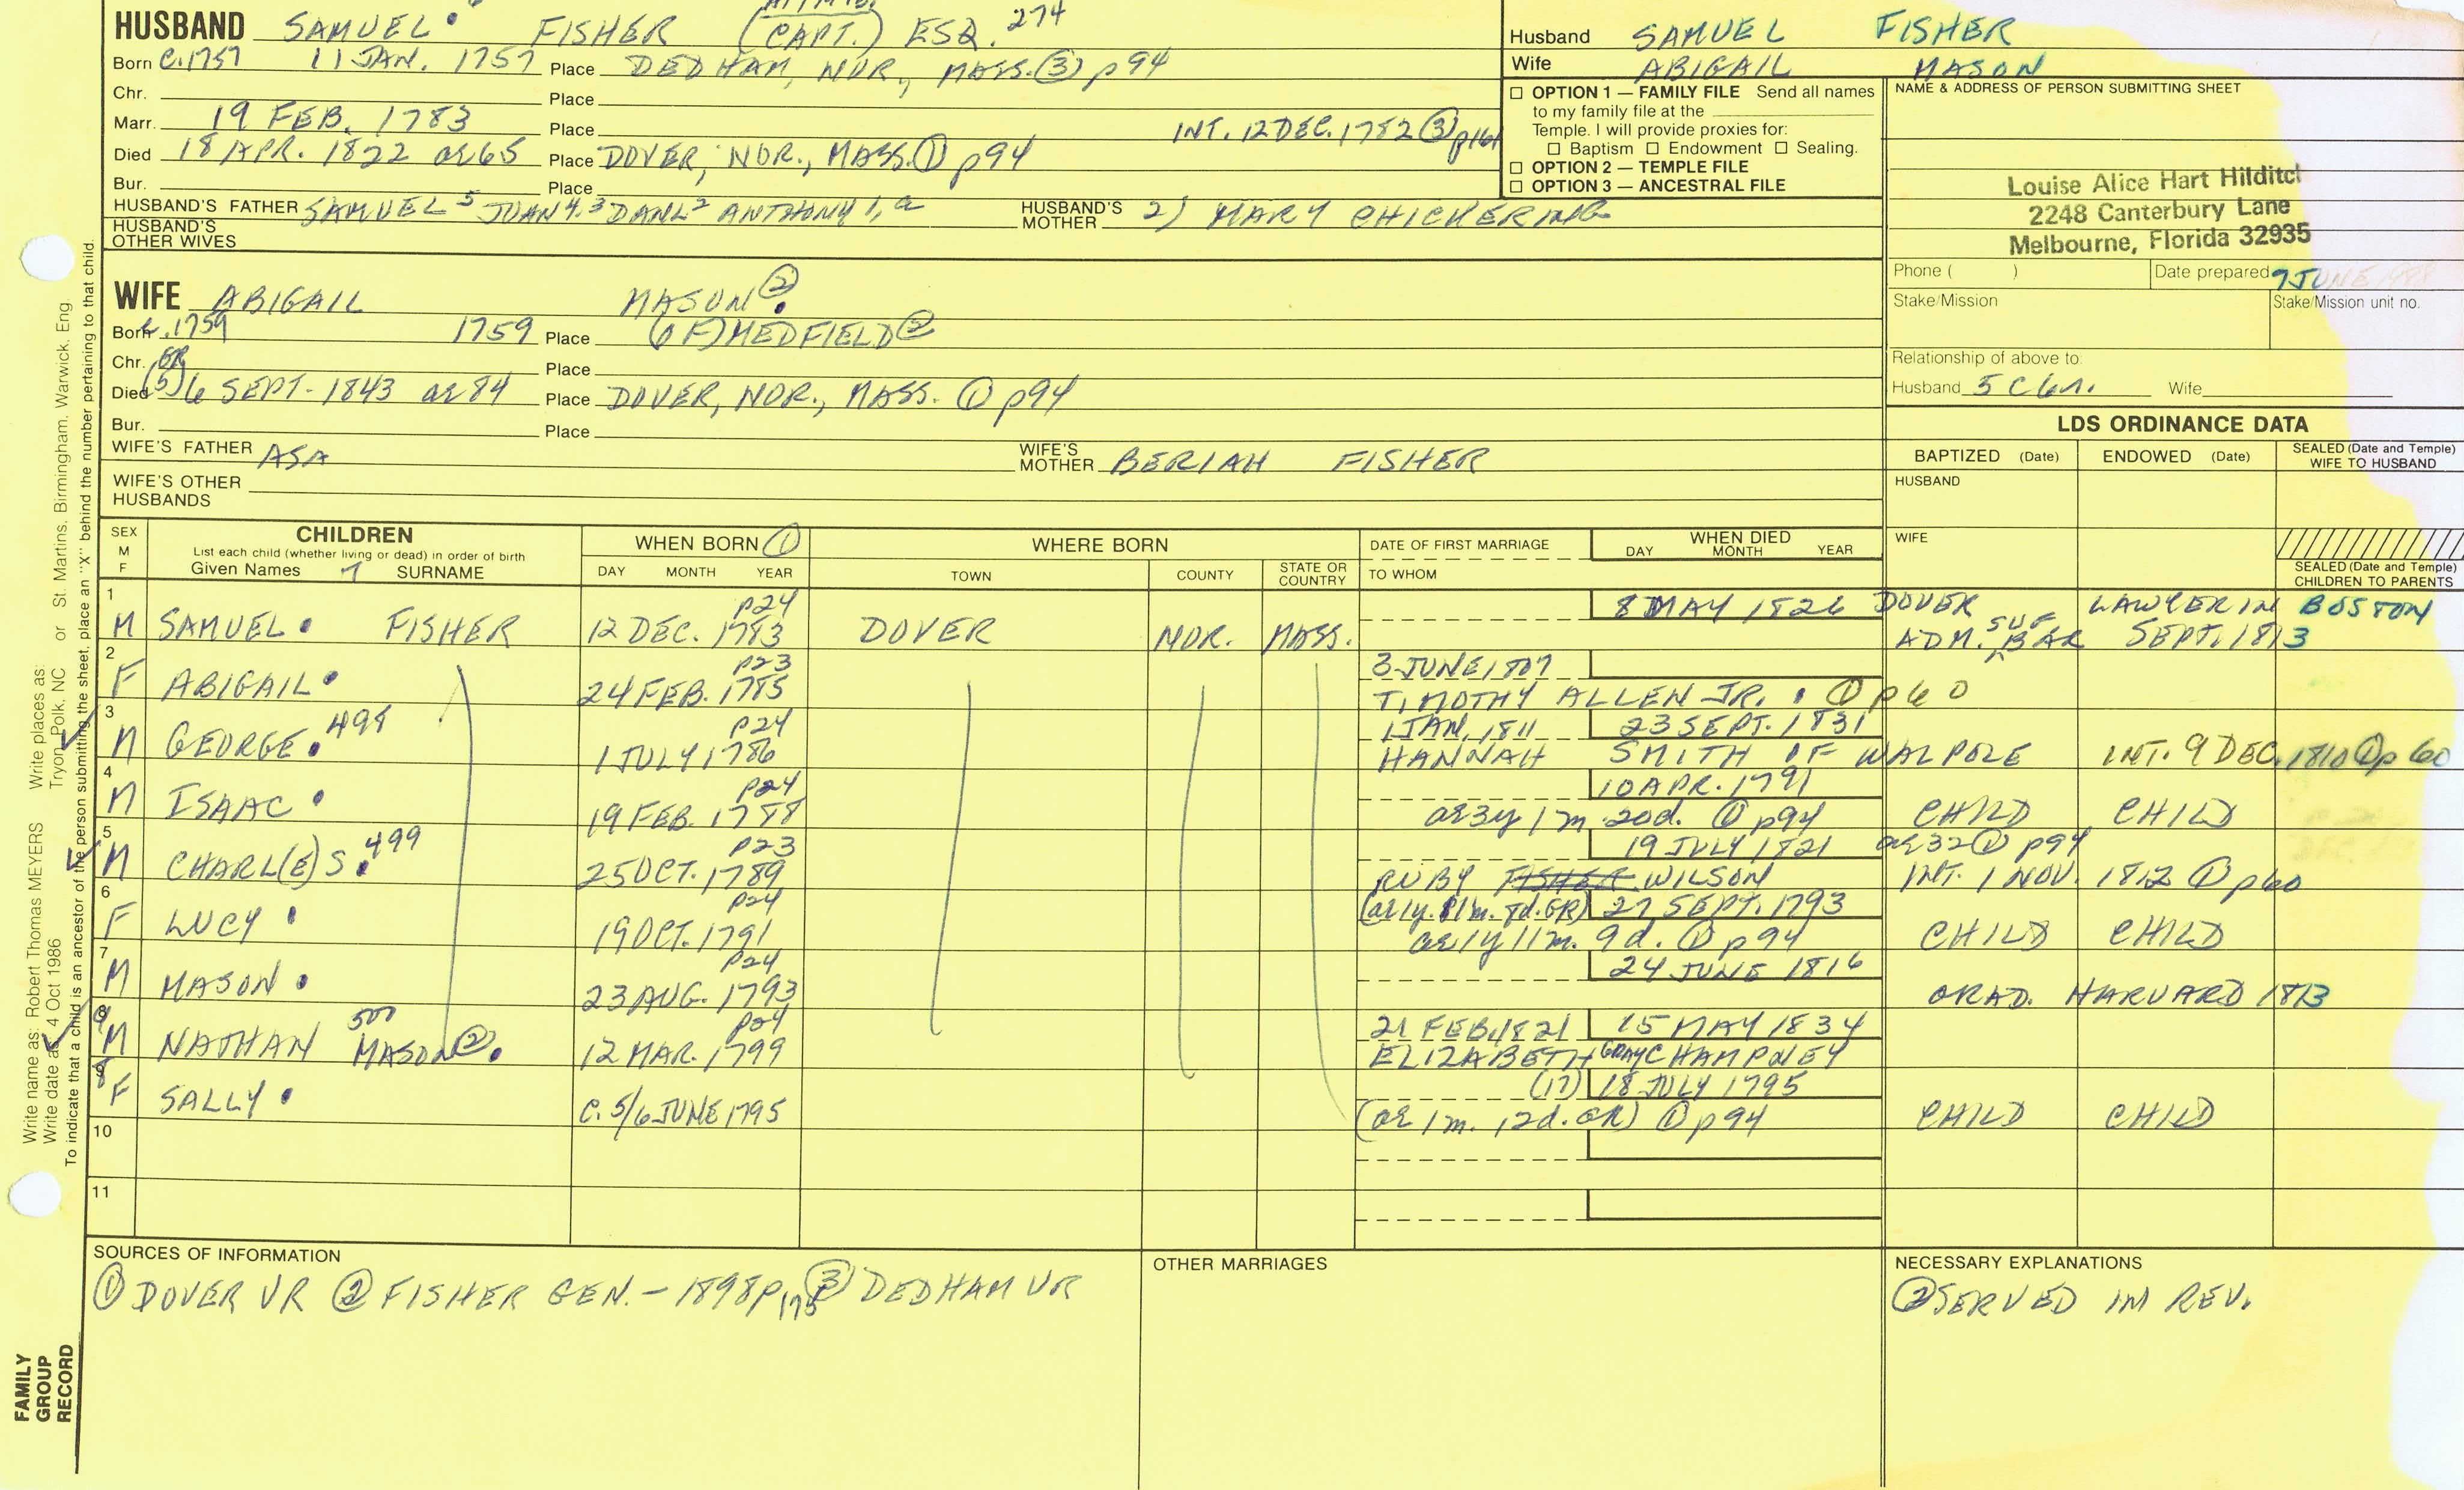 HUSBAND SAMUEL FISHER (CAPT.) ESQ. 274
Born C.1757 11 JAN. 1757 Place DEDHAM, NOR., MASS. (3) p94
Chr. Place
Marr. 19 FEB. 1783 Place INT. 12 DEC. 1782 (3) p161
Died 18 APR. 1822 ae 65 Place DOVER, NOR., MASS. (1) p94
Bur. Place
HUSBAND'S FATHER SAMUEL 5 JOHN 4.3 DANL 2 ANTHONY 1, a HUSBAND'S MOTHER 2) MARY CHICKERING
HUSBAND'S OTHER WIVES
Husband SAMUEL FISHER
Wife ABIGAIL MASON
☐ OPTION 1 — FAMILY FILE Send all names
to my family file at the
Temple. I will provide proxies for:
☐ Baptism ☐ Endowment ☐ Sealing.
☐ OPTION 2 — TEMPLE FILE
☐ OPTION 3 — ANCESTRAL FILE
NAME & ADDRESS OF PERSON SUBMITTING SHEET
Louise Alice Hart Hilditch
2248 Canterbury Lane
Melbourne, Florida 32935
Phone ( ) Date prepared 7 JUNE
Stake/Mission Stake/Mission unit no.
Relationship of above to:
Husband 5 C 6 r. Wife
WIFE ABIGAIL MASON (2)
Born c.1759 1759 Place (OF) MEDFIELD (2)
Chr. Place
Died (5 GR) 6 SEPT. 1843 ae 84 Place DOVER, NOR., MASS. (1) p94
Bur. Place
WIFE'S FATHER ASA WIFE'S MOTHER BERIAH FISHER
WIFE'S OTHER HUSBANDS
LDS ORDINANCE DATA
BAPTIZED (Date) ENDOWED (Date) SEALED (Date and Temple) WIFE TO HUSBAND
HUSBAND
WIFE
SEALED (Date and Temple) CHILDREN TO PARENTS
SEX M F CHILDREN List each child (whether living or dead) in order of birth Given Names SURNAME WHEN BORN (1) DAY MONTH YEAR WHERE BORN TOWN COUNTY STATE OR COUNTRY DATE OF FIRST MARRIAGE TO WHOM WHEN DIED DAY MONTH YEAR
1 p24 8 MAY 1826 DOVER LAWYER IN BOSTON
M SAMUEL FISHER 12 DEC. 1783 DOVER NOR. MASS. ADM. SUF BAR SEPT. 1813
2 p23 3 JUNE 1807
F ABIGAIL 24 FEB. 1785 TIMOTHY ALLEN JR. (1) p60
3 p24 1 JAN, 1811 23 SEPT. 1831
M GEORGE 498 1 JULY 1786 HANNAH SMITH OF WALPOLE INT. 9 DEC. 1810 (1) p60
4 p24 10 APR. 1791
M ISAAC 19 FEB. 1788 ae 3y 1m 20d. (1) p94 CHILD CHILD
5 p23 19 JULY 1821 ae 32 (1) p94
M CHARL(E)S 499 25 OCT. 1789 RUBY FISHER WILSON INT. 1 NOV. 1812 (1) p60
6 p24 27 SEPT. 1793
F LUCY 19 OCT. 1791 ae 1y 11m. 9d. (1) p94 CHILD CHILD
7 p24 24 JUNE 1816
M MASON 23 AUG. 1793 GRAD. HARVARD 1813
9 p24 21 FEB. 1821 15 MAY 1834
M NATHAN 500 MASON (2) 12 MAR. 1799 ELIZABETH GRAY CHAMPNEY
8 (17) 18 JULY 1795
F SALLY C. 5/6 JUNE 1795 (ae 1m. 12d. GR) (1) p94 CHILD CHILD
10
11
SOURCES OF INFORMATION
(1) DOVER VR (2) FISHER GEN. - 1898 p175 (3) DEDHAM VR
OTHER MARRIAGES
NECESSARY EXPLANATIONS
(2) SERVED IN REV.
Write name as: Robert Thomas MEYERS Write places as: Tryon, Polk, NC or St. Martins, Birmingham, Warwick, Eng
Write date as: 4 Oct 1986
To indicate that a child is an ancestor of the person submitting the sheet, place an "X" behind the number pertaining to that child.
FAMILY
GROUP
RECORD